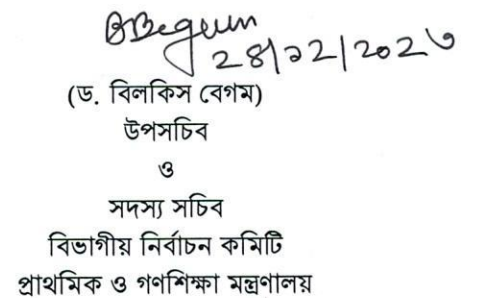 BBegum
২৪/১২/২০২৩
(ড. বিলকিস বেগম)
উপসচিব
ও
সদস্য সচিব
বিভাগীয় নির্বাচন কমিটি
প্রাথমিক ও গণশিক্ষা মন্ত্রণালয়